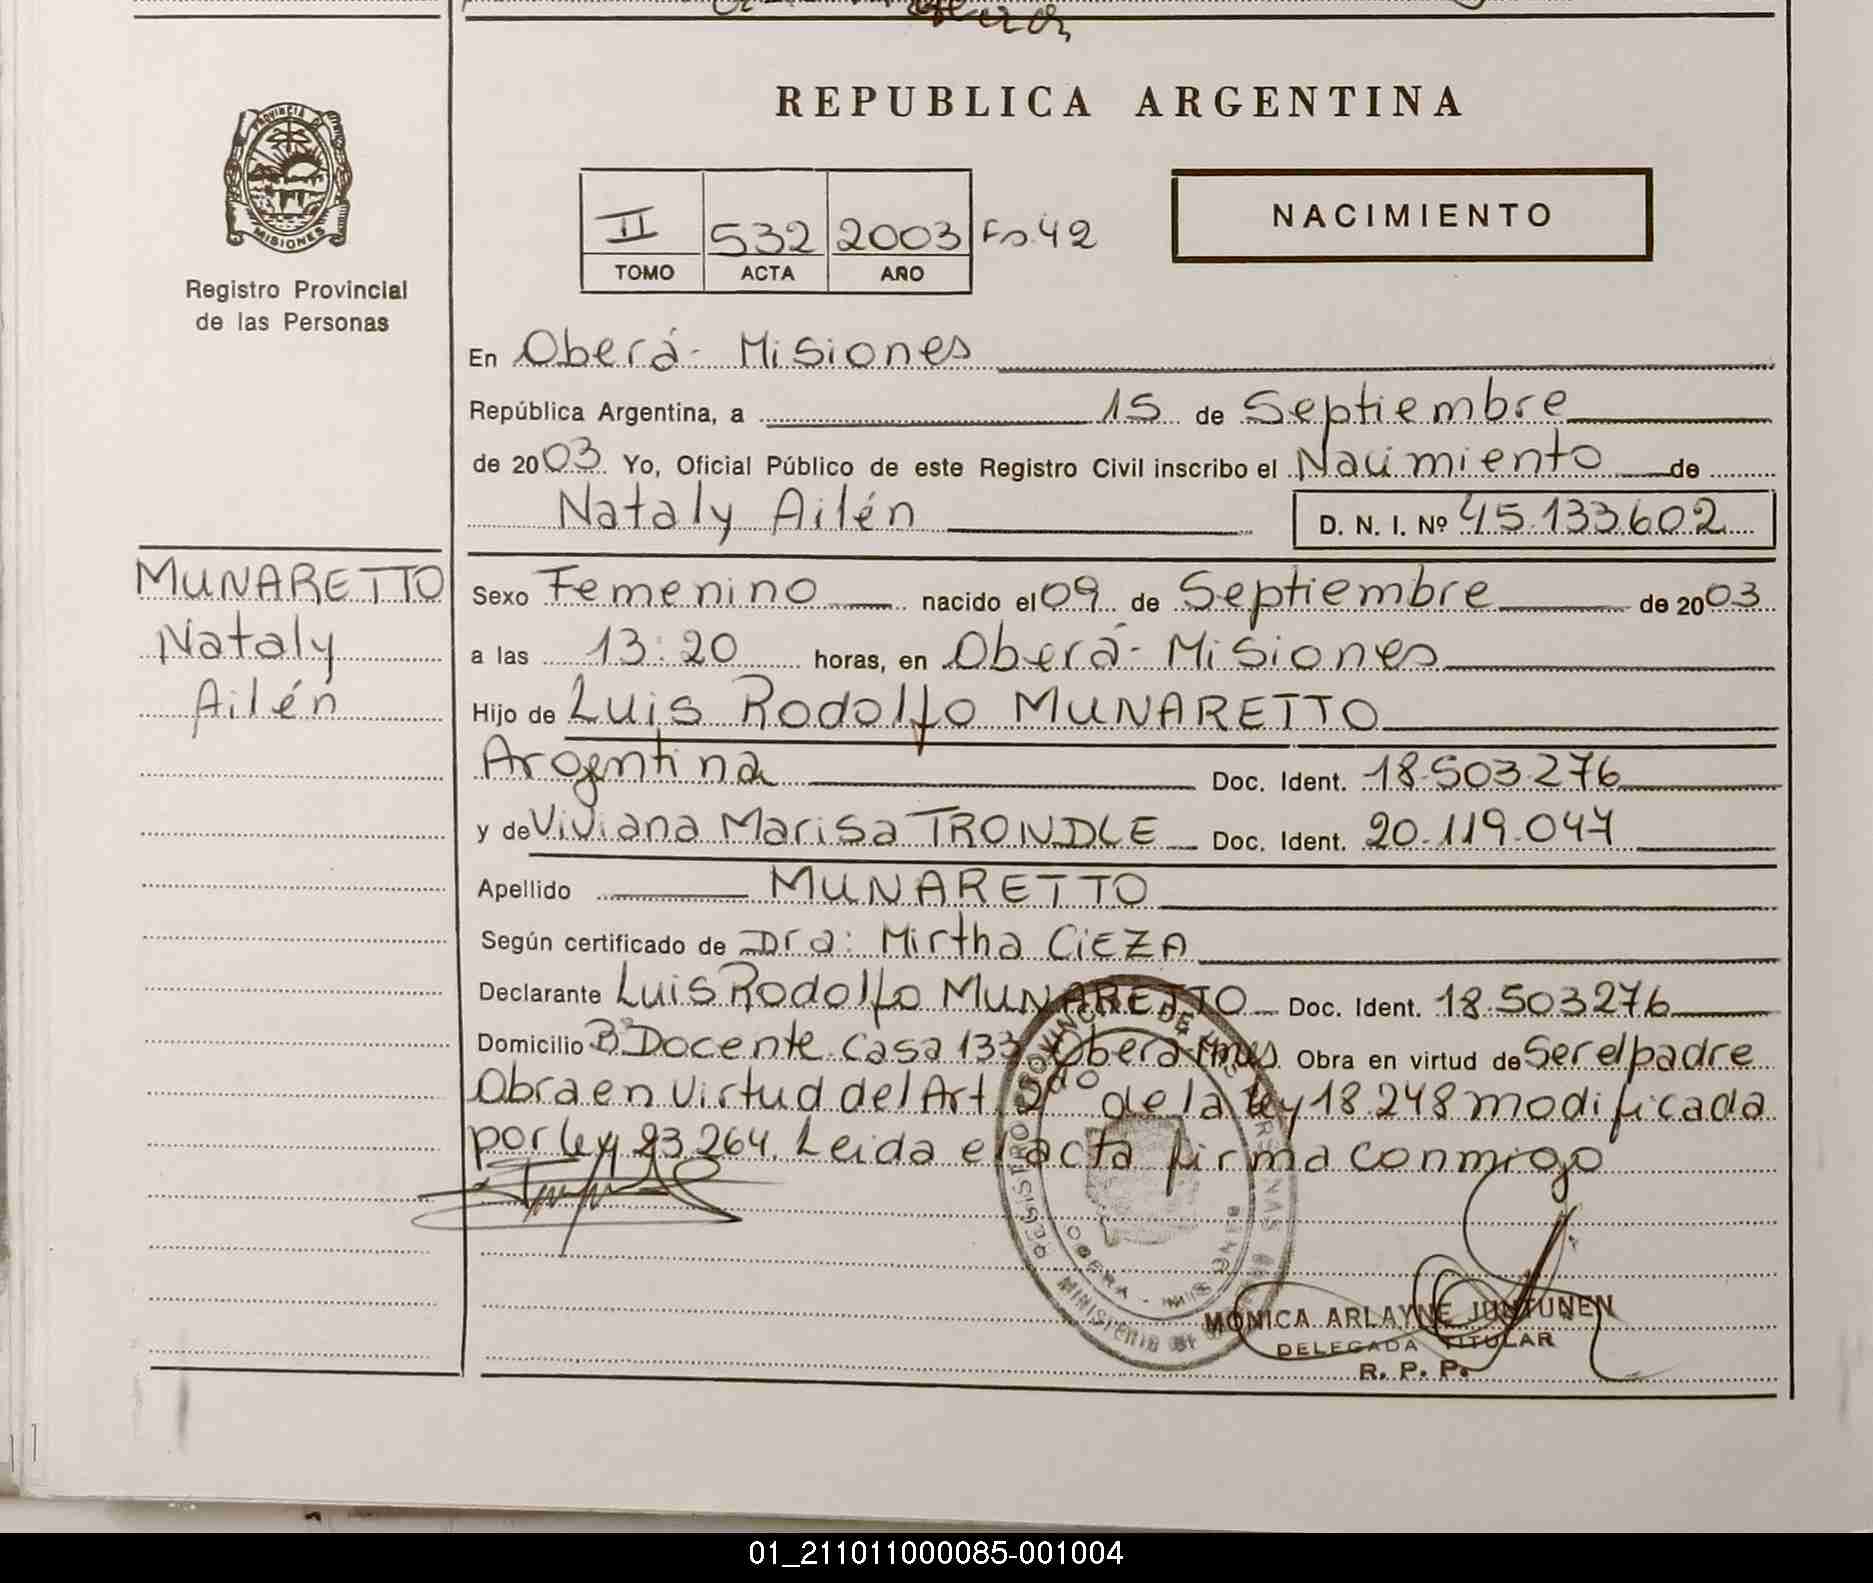 REPUBLICA ARGENTINA
PROVINCIA DE MISIONES
Registro Provincial
de las Personas
II 532 2003 Fº 42
TOMO ACTA AÑO
NACIMIENTO
En Oberá - Misiones
República Argentina, a 15 de Septiembre
de 2003. Yo, Oficial Público de este Registro Civil inscribo el Nacimiento de
Nataly Ailén D. N. I. Nº 45.133.602
MUNARETTO
Nataly
Ailén
Sexo Femenino nacido el 09 de Septiembre de 2003
a las 13:20 horas, en Oberá - Misiones
Hijo de Luis Rodolfo MUNARETTO
Argentina Doc. Ident. 18.503.276
y de Viviana Marisa TRONDLE Doc. Ident. 20.119.047
Apellido MUNARETTO
Según certificado de Dra: Mirtha CIEZA
Declarante Luis Rodolfo MUNARETTO Doc. Ident. 18.503276
Domicilio Bº Docente Casa 133 Oberá Mnes Obra en virtud de Ser el padre
Obra en virtud del Art. 2do de la ley 18.248 modificada
por ley 23.264. Leida el acta firma conmigo
REGISTRO PROVINCIAL DE LAS PERSONAS
OBERA - MISIONES
MINISTERIO DE
MONICA ARLAYNE JUNTUNEN
DELEGADA TITULAR
R. P. P.
01_211011000085-001004